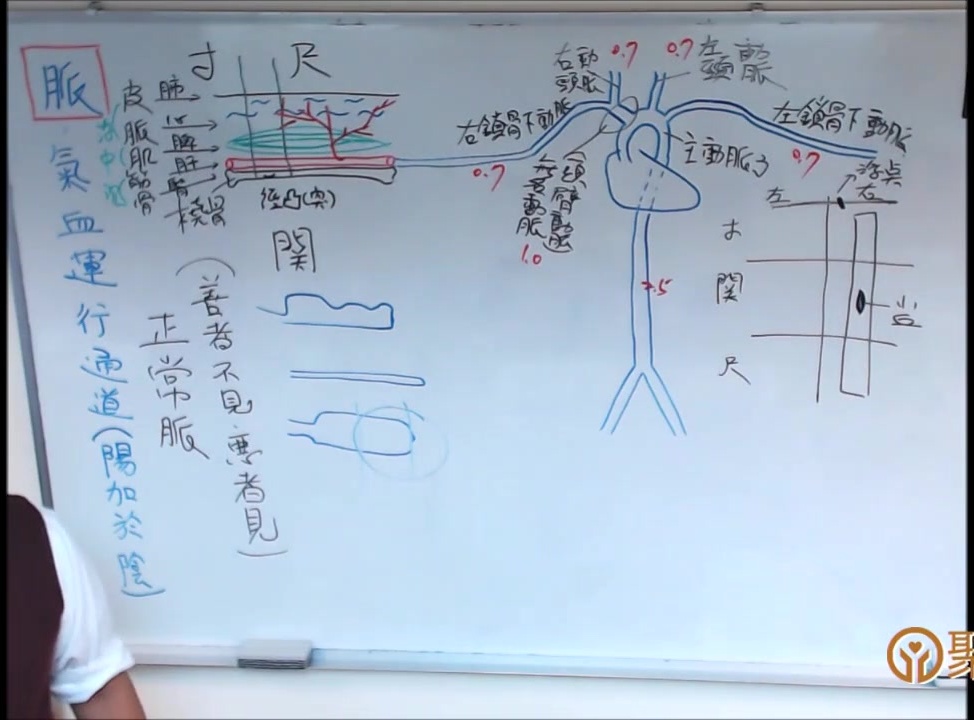 脈
氣血運行通道(陽加於陰)
寸 尺
皮 肺
脈 心
肌 脾
筋 肝
骨 腎
橈骨
徑凸(突)
関
正常脈
(善者不見,惡者見)
右鎖骨下動脈
0.7
右動
頸脈
0.7
0.7
左
頸動
脈
左鎖骨下動脈
0.7
主動脈弓
頭臂動脈
1.0
浮点
左 右
寸
関
尺
聚